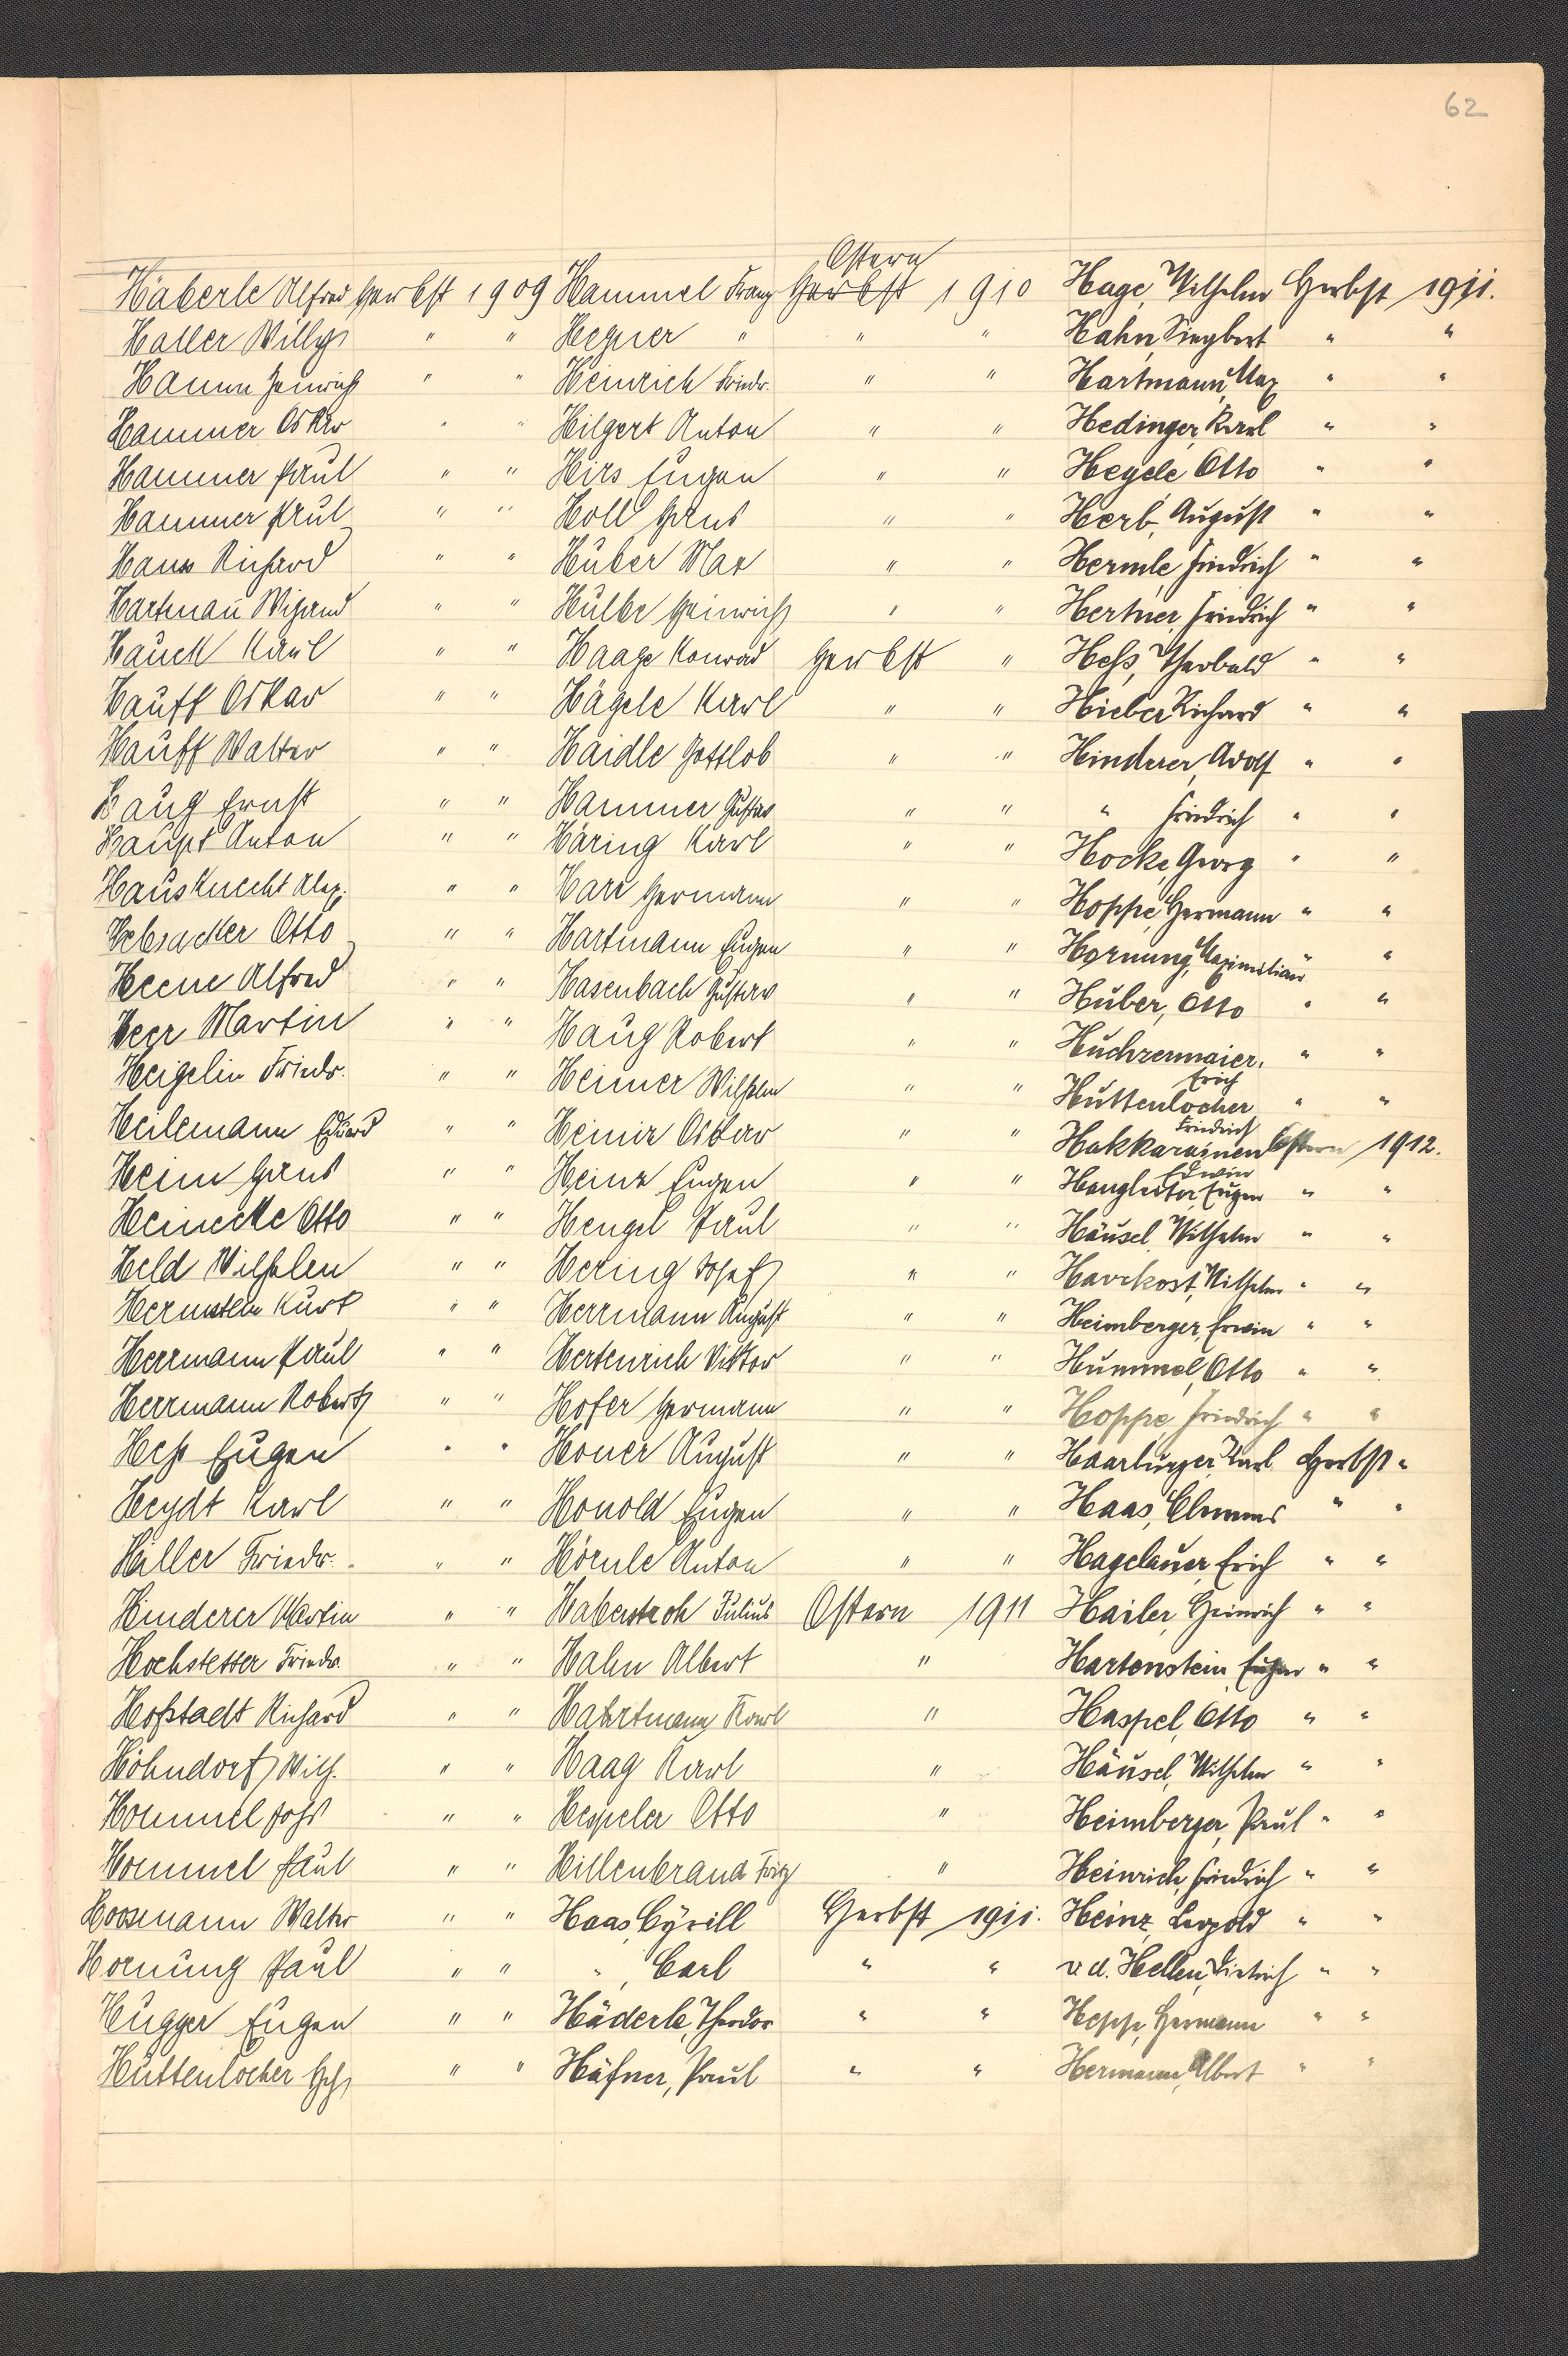 62
Häberle Alfred Herbst 1909
Haller Willy " "
Hamm Heinrich " "
Hammer Oskar " "
Hammer Paul " "
Hammer Paul " "
Hans Richard " "
Hartmañ Wigand " "
Hauck Karl " "
Hauff Oskar " "
Hauff Walter " "
Haug Ernst " "
Haupt Anton " "
Hausknecht Alex. " "
Hebsacker Otto " "
Heene Alfred " "
Heer Martin " "
Heigelin Friedr. " "
Heilemann Eduard " "
Heim Hans " "
Heinecke Otto " "
Held Wilhelm " "
Kurt " "
Herrmann Paul " "
Herrmann Robert " "
Heß Eugen " "
Heydt Karl " "
Hiller Friedr. " "
Hinderer Martin " "
Hochstetter Friedr. " "
Hofstadt Richard " "
Höhndorf Wilh. " "
Hommel Johs " "
Hommel Paul " "
Hoosmann Walter " "
Hornung Paul " "
Hugger Eugen " "
Huttenlocher " "
Ostern
Hammel Franz Herbst 1910
Hegner " " "
Heinrich Friedr. " "
Hilgert Anton " "
Hirs Eugen " "
Holl Hans " "
Huber Max " "
Hülbe Heinrich " "
Haage Konrad Herbst "
Hägele Karl " "
Haidle Gottlob " "
Hammer Gustav " "
Häring Karl " "
Harr Hermann " "
Hartmann Eugen " "
Hasenbach Gustav " "
Haug Robert " "
Heimer Wilhelm " "
Oskar " "
Heinz Eugen " "
Hengel Paul " "
Hering Josef " "
Herrmann August " "
Hertenrich Viktor " "
Hofer Hermann " "
Honer August " "
Honold Eugen " "
Hörnle Anton " "
Haberstroh Julius Ostern 1911
Hahn Albert "
Hahrtmann Karl "
Haag Karl "
Heppeler Otto "
Hillenbrand Fritz "
Haas, Cyrill Herbst 1911.
" , Carl " "
Häderle, Theodor " "
Häfner, Paul " "
Hage, Wilhelm Herbst 1911.
Hahn, Siegbert " "
Hartmann, Max " "
Hedinger, Karl " "
Hegele Otto " "
Herb, August " "
Hermle, Friedrich " "
Hertner, Friedrich " "
Heß, Theobald " "
Hieber Richard " "
Hinderer, Adolf " "
" Friedrich " "
Hocke, Georg " "
Hoppe, Hermann " "
Hornung, Maximilian " "
Huber, Otto " "
Huchzermaier, " "
Erich
Huttenlocher " "
Friedrich
Hakkarainen Ostern 1912.
Edwin
Hangleiter, Eugen " "
Häusel, Wilhelm " "
Havekost, Wilhelm " "
Heimberger, Erwin " "
Hummel, Otto " "
Hoppe Friedrich " "
Haarburger, Karl Herbst "
Haas, Clemens " "
Hagelauer, Erich " "
Hailer, Heinrich " "
Hartenstein, Eugen " "
Haspel, Otto " "
Häusel, Wilhelm " "
Heimberger, Paul " "
Heinrich, Friedrich " "
Heinz, Leopold " "
v. d. Hellen, Dietrich " "
Hepp, Hermann " "
Hermann, Albert " "